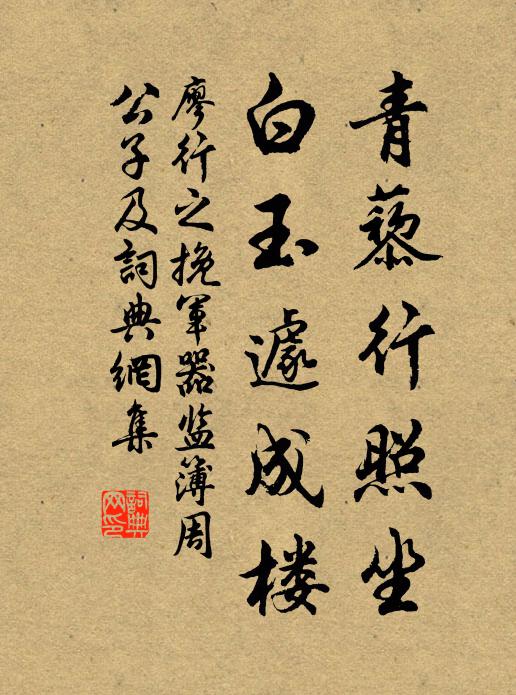 青藜行照坐
白玉遽成楼
廖行之挽军器监簿周
公子及词典网集
词典网印